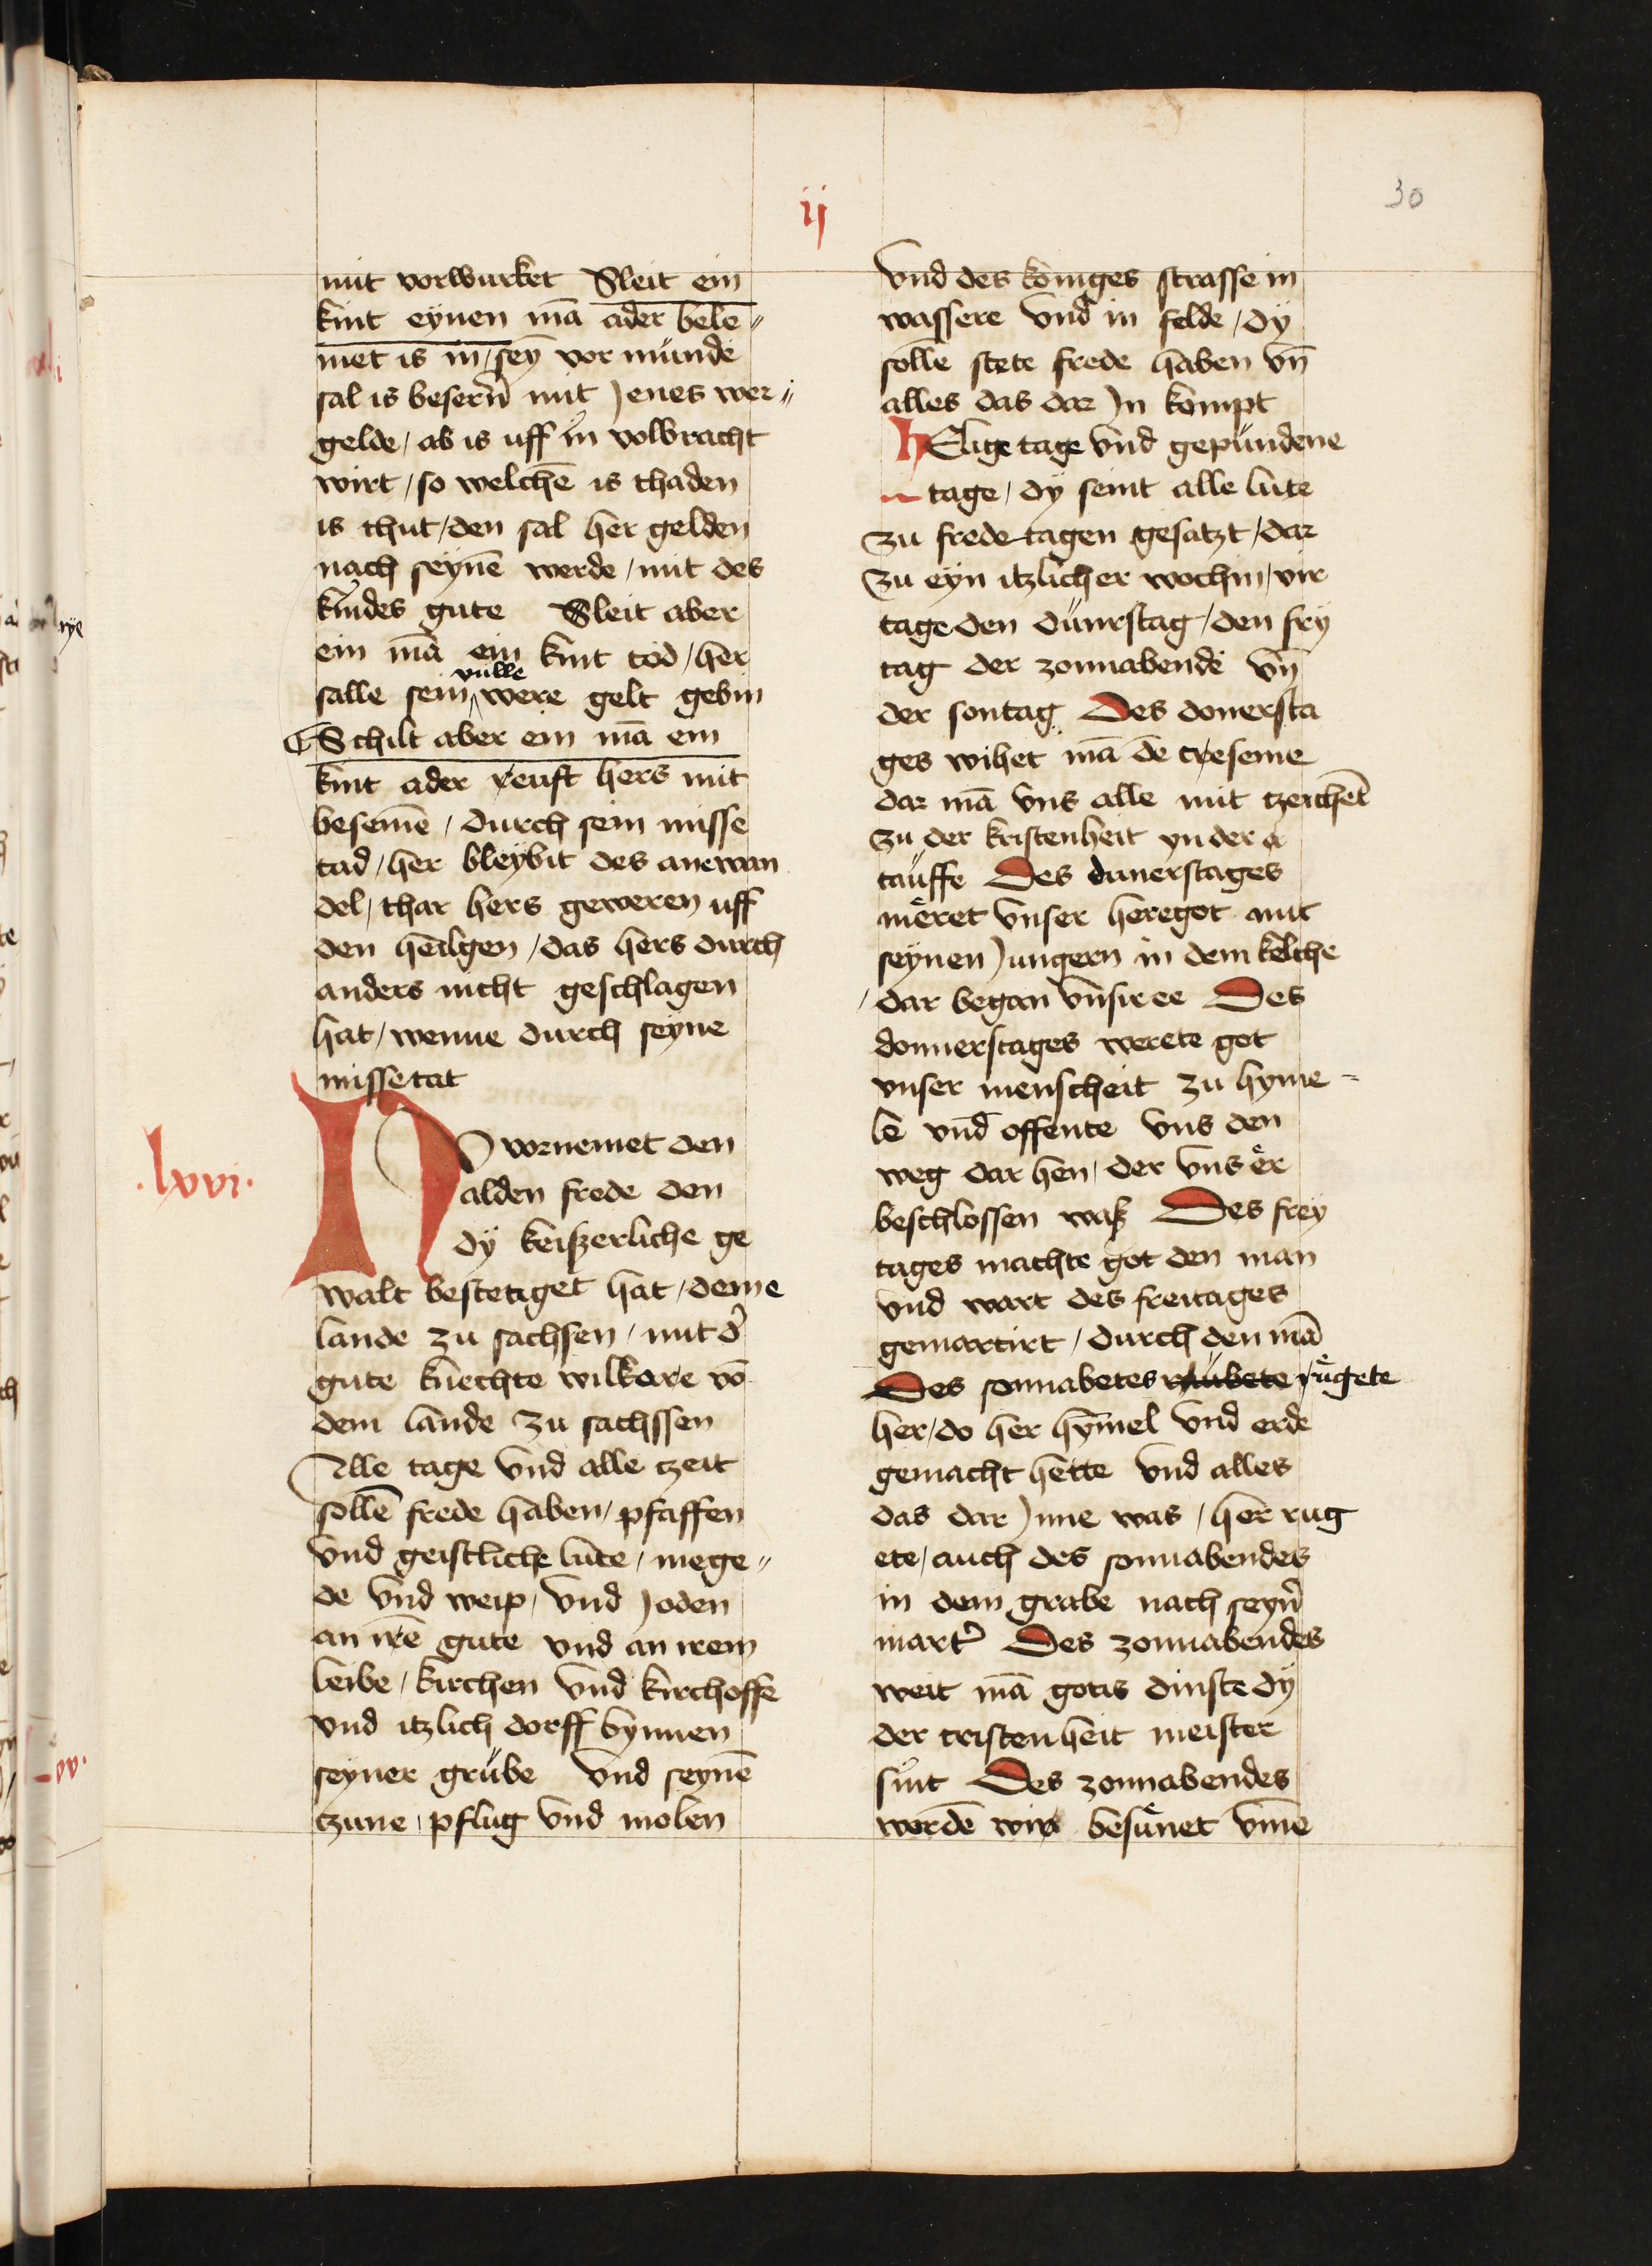 ij
30
mit vorwurket Sleit ein
kint eynen mā ader bele〃
met is in / sey̅ vor munde
sal is beserñ mit jenes wer〃
gelde / ab is uff in volbracht
wirt / so welchē is thaden
is thut / den sal her gelden
nach seynē werde / mit des
kindes gute Sleit aber
ein mā ein kint tod / her
vulle
salle sein were gelt gebin
Schilt aber ein mā ein
kint ader reuft hers mit
besemē / durch sein misse
tad / her bleybit des anewan
del / thar hers geweren uff
den heilgen / das hers durch
anders nicht geschlagen
hat / wenne durch seyne
missetat
·lxvi·
NV vornemet den
alden frede den
dy keiszerliche ge
walt bestetiget hat / deme
lande zu sachsen / mit d̕
gute knechte wilkore vō
dem lande zu sachssen
Alle tage vnd alle czeit
sollē frede haben / pfaffen
vnd geistliche lute / mege〃
de vnd weip / vnd joden
an irē gute vnd an irem
leibe / kirchen vnd kirchoffe
vnd itzlich dorff bynnen
seyner grube vnd seynē
czune / pflug vnd molen
Vnd des koniges strasse in
wassere vnd in felde / dy
solle stete frede haben vn̄
alles das dar jn kompt
hElige tage vnd gepundene
tage / dy seint alle lute
zu frede tagen gesatzt / dar
zu eyn itzlicher wochin / vir
tage den dunrstag / den fry
tag der zonnabende vn̄
der sontag Des donersta
ges wihet mā de creseme
dar mā vns alle mit czeichet
zu der kristenheit yn der
tauffe Des dunerstages
meret vnser heregot mit
seynen jungern in dem kelche
/ dar began vnsir ee Des
donnerstages werete got
vnser menscheit zu hyme-
le vnd offente vns den
weg dar hen / der vns er
beschlossen wasz Des frey
tages machte got den man
vnd wart des freitages
gemartirt / durch den mā
Des sonnabetes rugete
her / do her hymel vnd erde
gemacht hette vnd alles
das dar jnne was / her rug
ete / auch des sonnabendes
in dem grabe nach seyn̕
mart̕ Des zonnabendes
weit mā gotis dinste dy
der cristenheit meister
sint Des zonnabendes
wordē wir besunet vmē